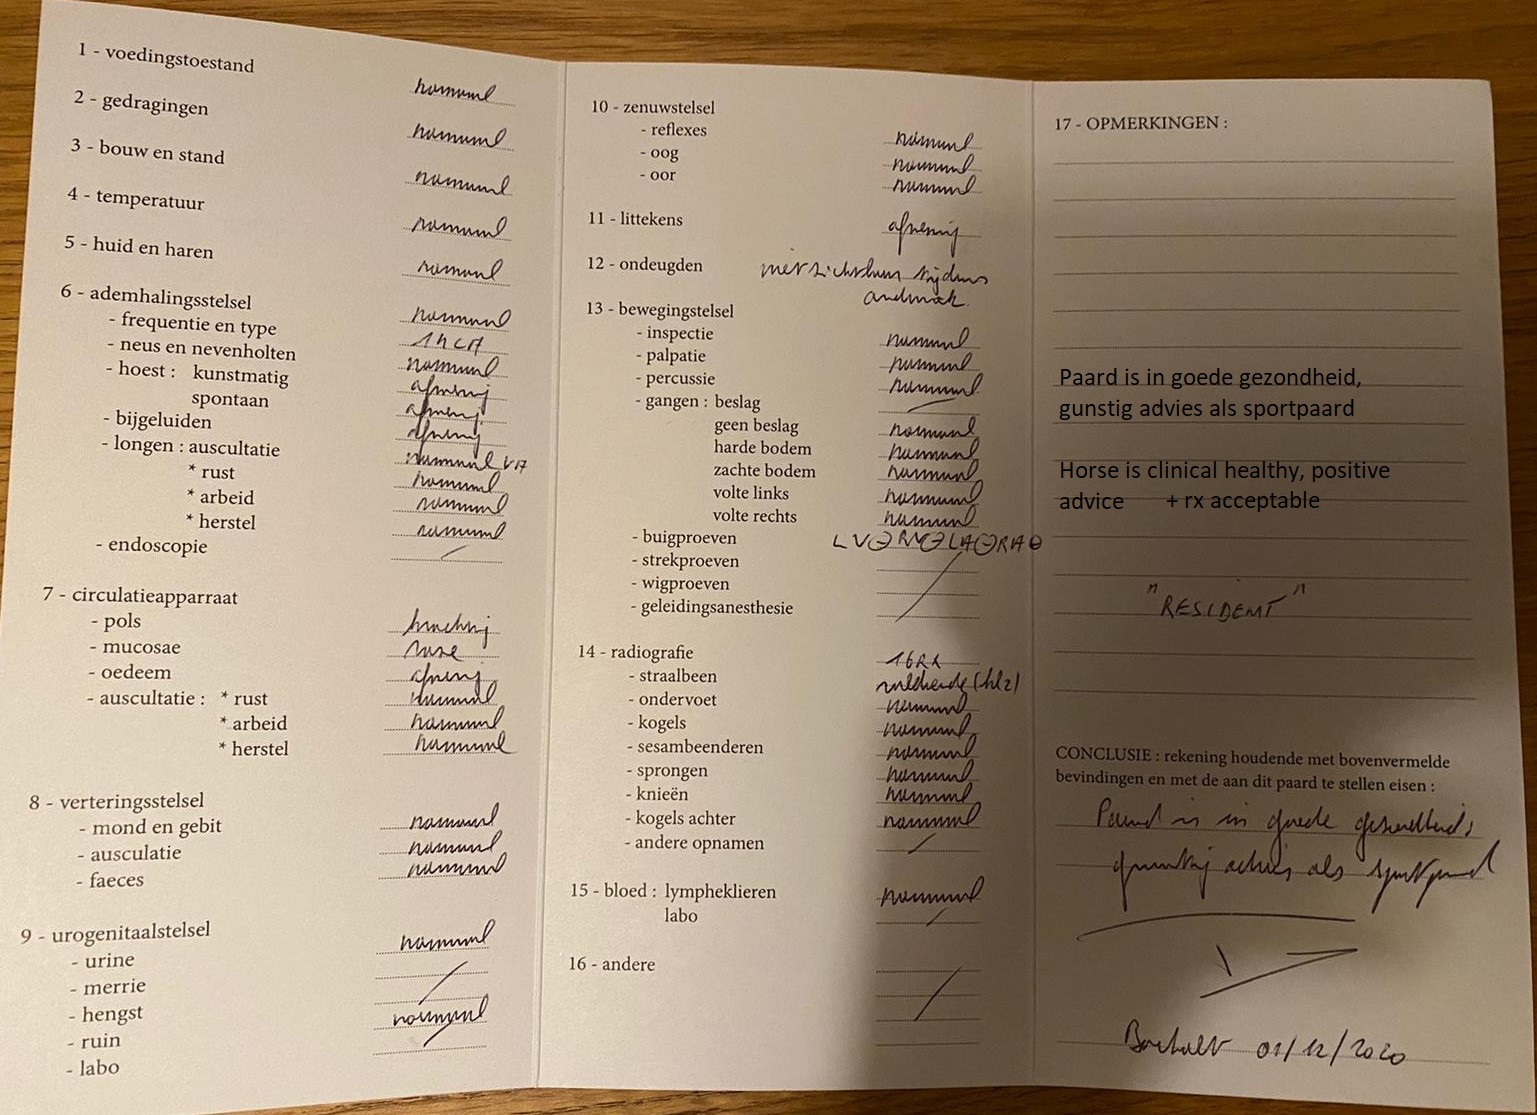 1 - voedingstoestand normaal
2 - gedragingen normaal
3 - bouw en stand normaal
4 - temperatuur normaal
5 - huid en haren normaal
6 - ademhalingsstelsel normaal
- frequentie en type
- neus en nevenholten normaal
- hoest : kunstmatig afwezig
spontaan afwezig
- bijgeluiden afwezig
- longen : auscultatie normaal
* rust normaal
* arbeid normaal
* herstel normaal
- endoscopie /
7 - circulatieapparraat
- pols krachtig
- mucosae roze
- oedeem afwezig
- auscultatie : * rust normaal
* arbeid normaal
* herstel normaal
8 - verteringsstelsel
- mond en gebit normaal
- ausculatie normaal
- faeces normaal
9 - urogenitaalstelsel normaal
- urine
- merrie /
- hengst normaal
- ruin
- labo
10 - zenuwstelsel
- reflexes normaal
- oog normaal
- oor normaal
11 - littekens afwezig
12 - ondeugden niet zichtbaar tijdens
onderzoek
13 - bewegingstelsel
- inspectie normaal
- palpatie normaal
- percussie normaal
- gangen : beslag /
geen beslag normaal
harde bodem normaal
zachte bodem normaal
volte links normaal
volte rechts normaal
- buigproeven LV⊖ RV⊖ LA⊖ RA⊖
- strekproeven
- wigproeven
- geleidingsanesthesie
14 - radiografie 16RX
- straalbeen voldoende (kl2)
- ondervoet normaal
- kogels normaal
- sesambeenderen normaal
- sprongen normaal
- knieën normaal
- kogels achter normaal
- andere opnamen /
15 - bloed : lympheklieren normaal
labo /
16 - andere /
17 - OPMERKINGEN :
Paard is in goede gezondheid,
gunstig advies als sportpaard
Horse is clinical healthy, positive
advice + rx acceptable
"RESIDENT"
CONCLUSIE : rekening houdende met bovenvermelde
bevindingen en met de aan dit paard te stellen eisen :
Paard is in goede gezondheid,
gunstig advies als sportpaard
Bocholt 01/12/2020